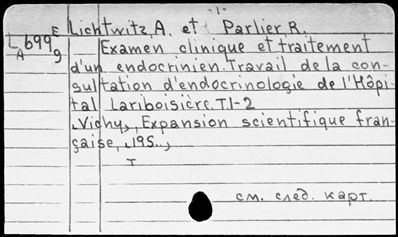 -1-
Lichtwitz, A. et Parlier, R.
L E
A 699 9
Examen clinique et traitement
d'un endocrinien Travail de la con-
sultation d'endocrinologie de l'Hôpi-
tal Lariboisière. T1-2
Vichy, Expansion scientifique fran-
çaise, 195..,
T
см. след. карт.